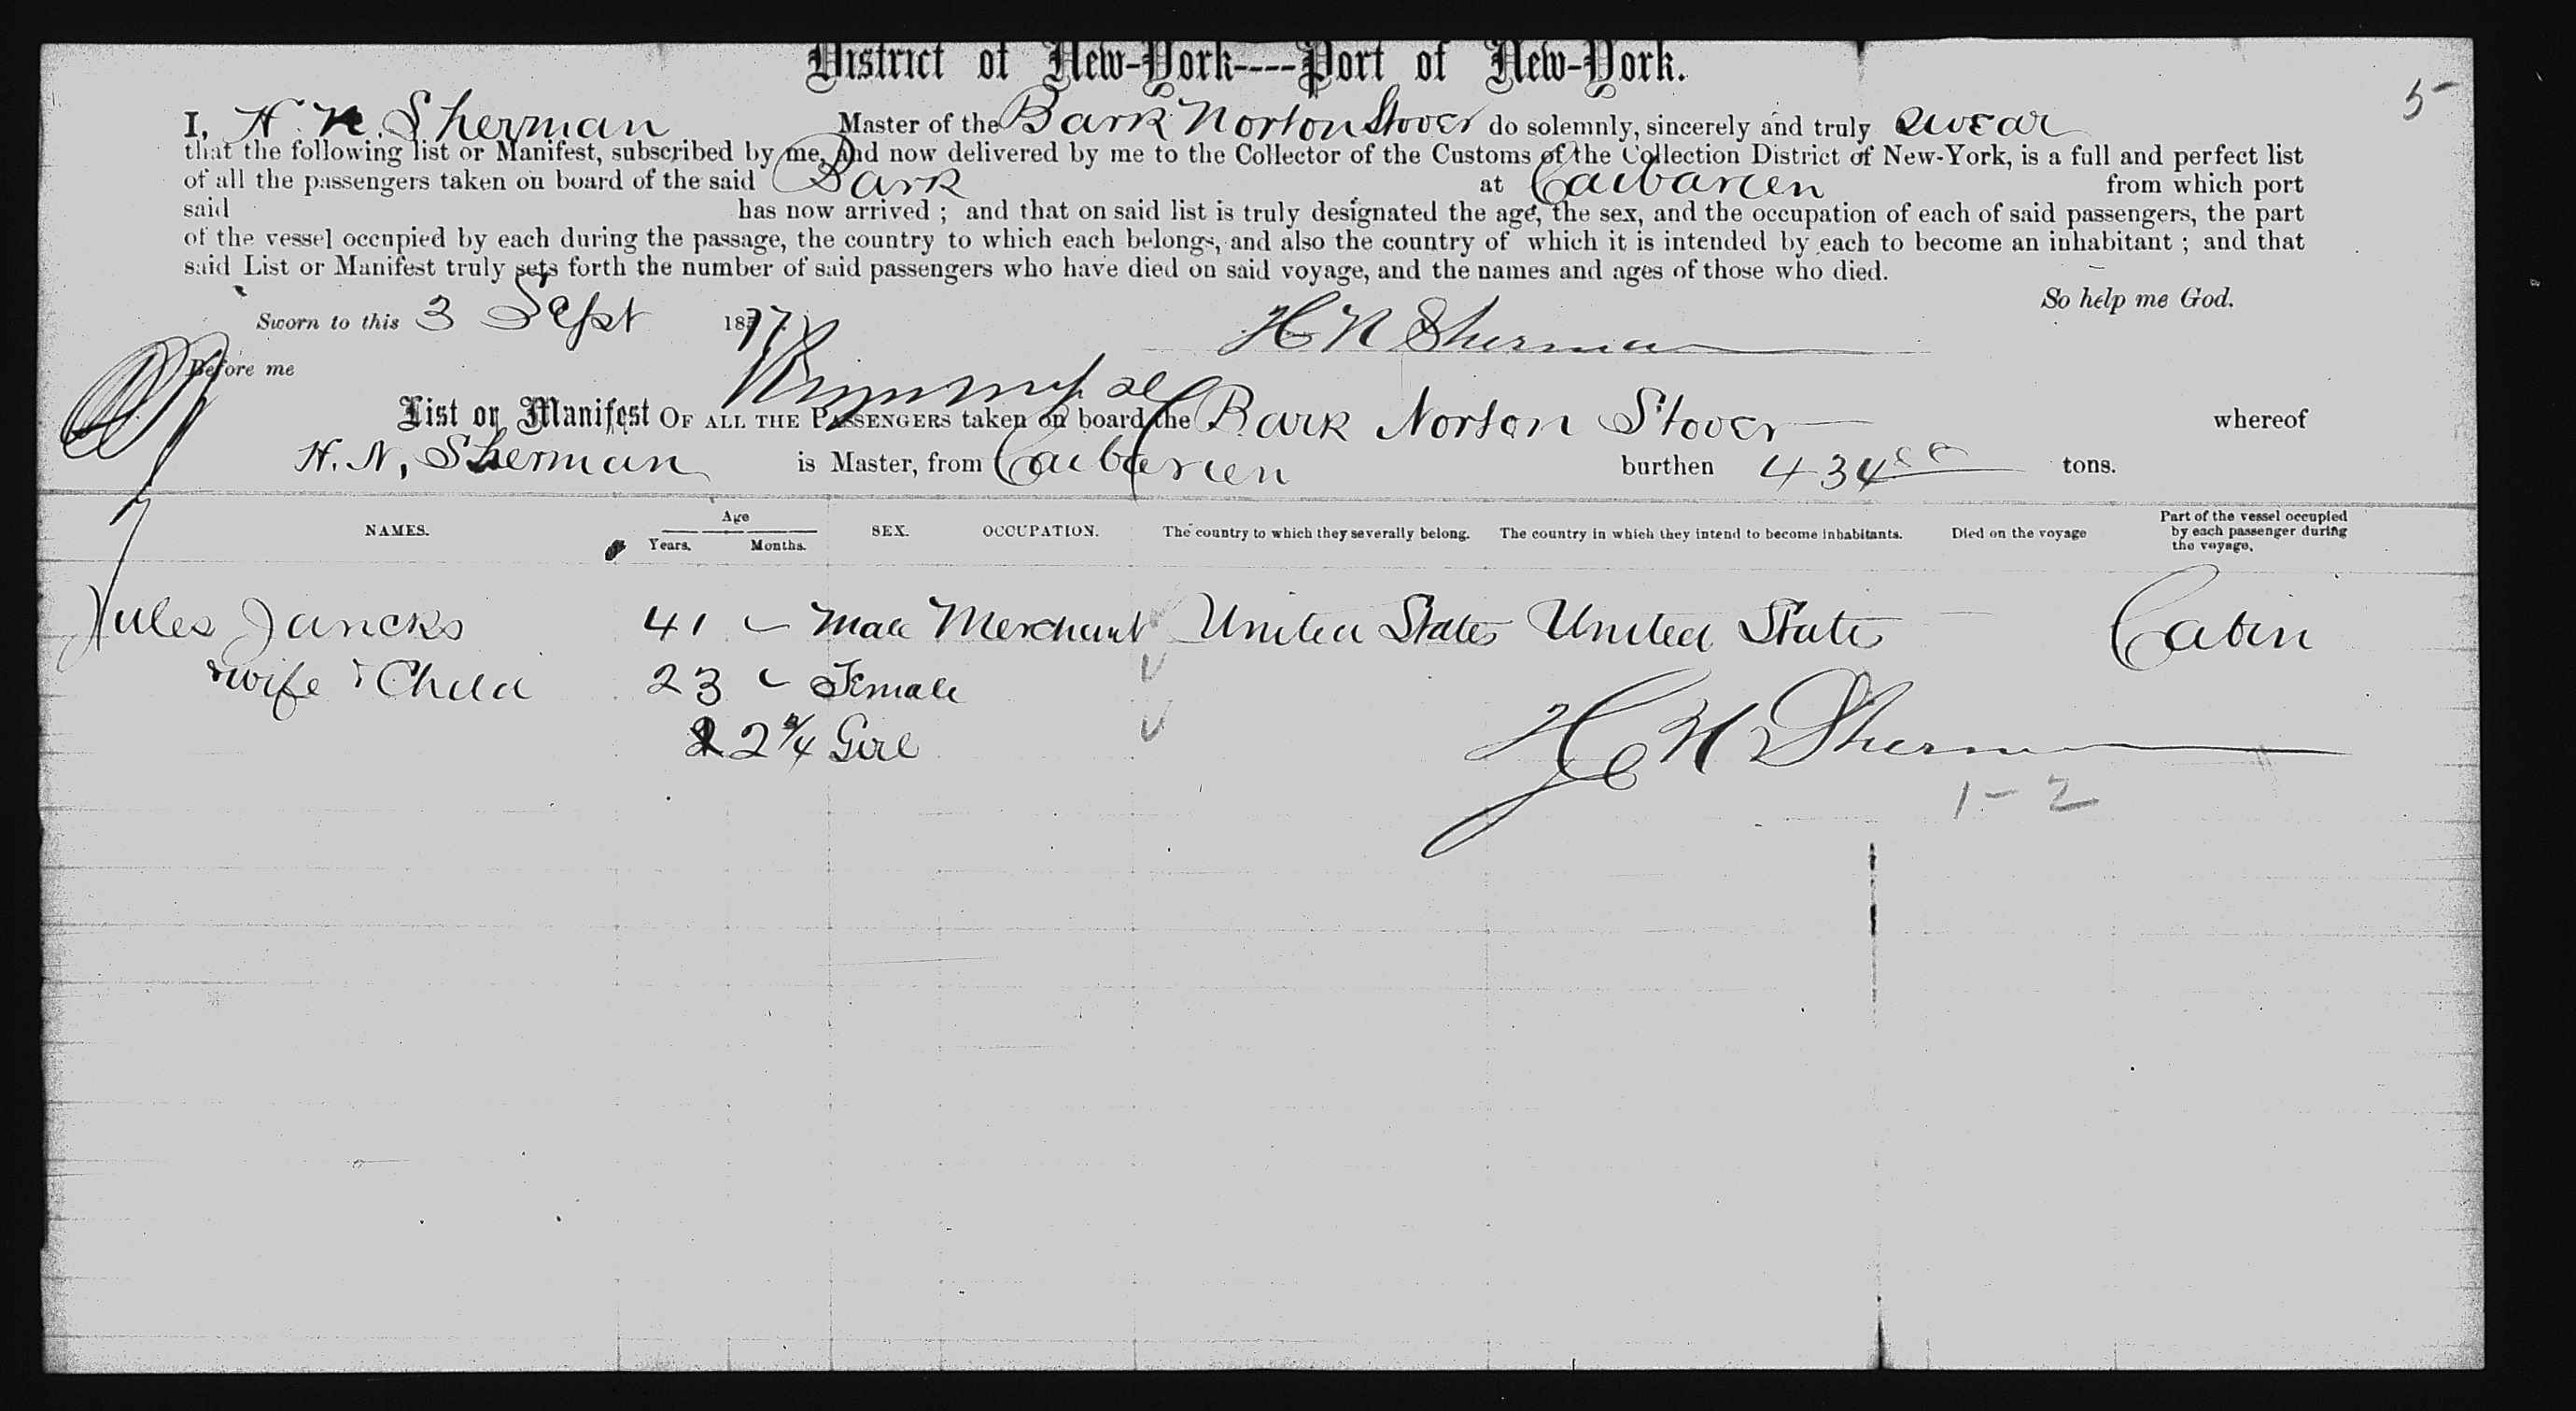 District of New-York----Port of New-York.
5
I, H. N. Sherman Master of the Bark Norton Stover do solemnly, sincerely and truly swear
that the following list or Manifest, subscribed by me, and now delivered by me to the Collector of the Customs of the Collection District of New-York, is a full and perfect list
of all the passengers taken on board of the said Bark at Caibarien from which port
said has now arrived ; and that on said list is truly designated the age, the sex, and the occupation of each of said passengers, the part
of the vessel occupied by each during the passage, the country to which each belongs, and also the country of which it is intended by each to become an inhabitant ; and that
said List or Manifest truly sets forth the number of said passengers who have died on said voyage, and the names and ages of those who died.
So help me God.
Sworn to this 3 Sept 1877 H N Sherman
Before me
List or Manifest OF ALL THE PASSENGERS taken on board the Bark Norton Stover whereof
H. N. Sherman is Master, from Caibarien burthen 434 tons.
NAMES. Age Years. Months. SEX. OCCUPATION. The country to which they severally belong. The country in which they intend to become inhabitants. Died on the voyage Part of the vessel occupied by each passenger during the voyage.
Jules Jancks 41 Male Merchant United States United States Cabin
& wife & Child 23 Female
2 Girl
H N Sherman
1 - 2